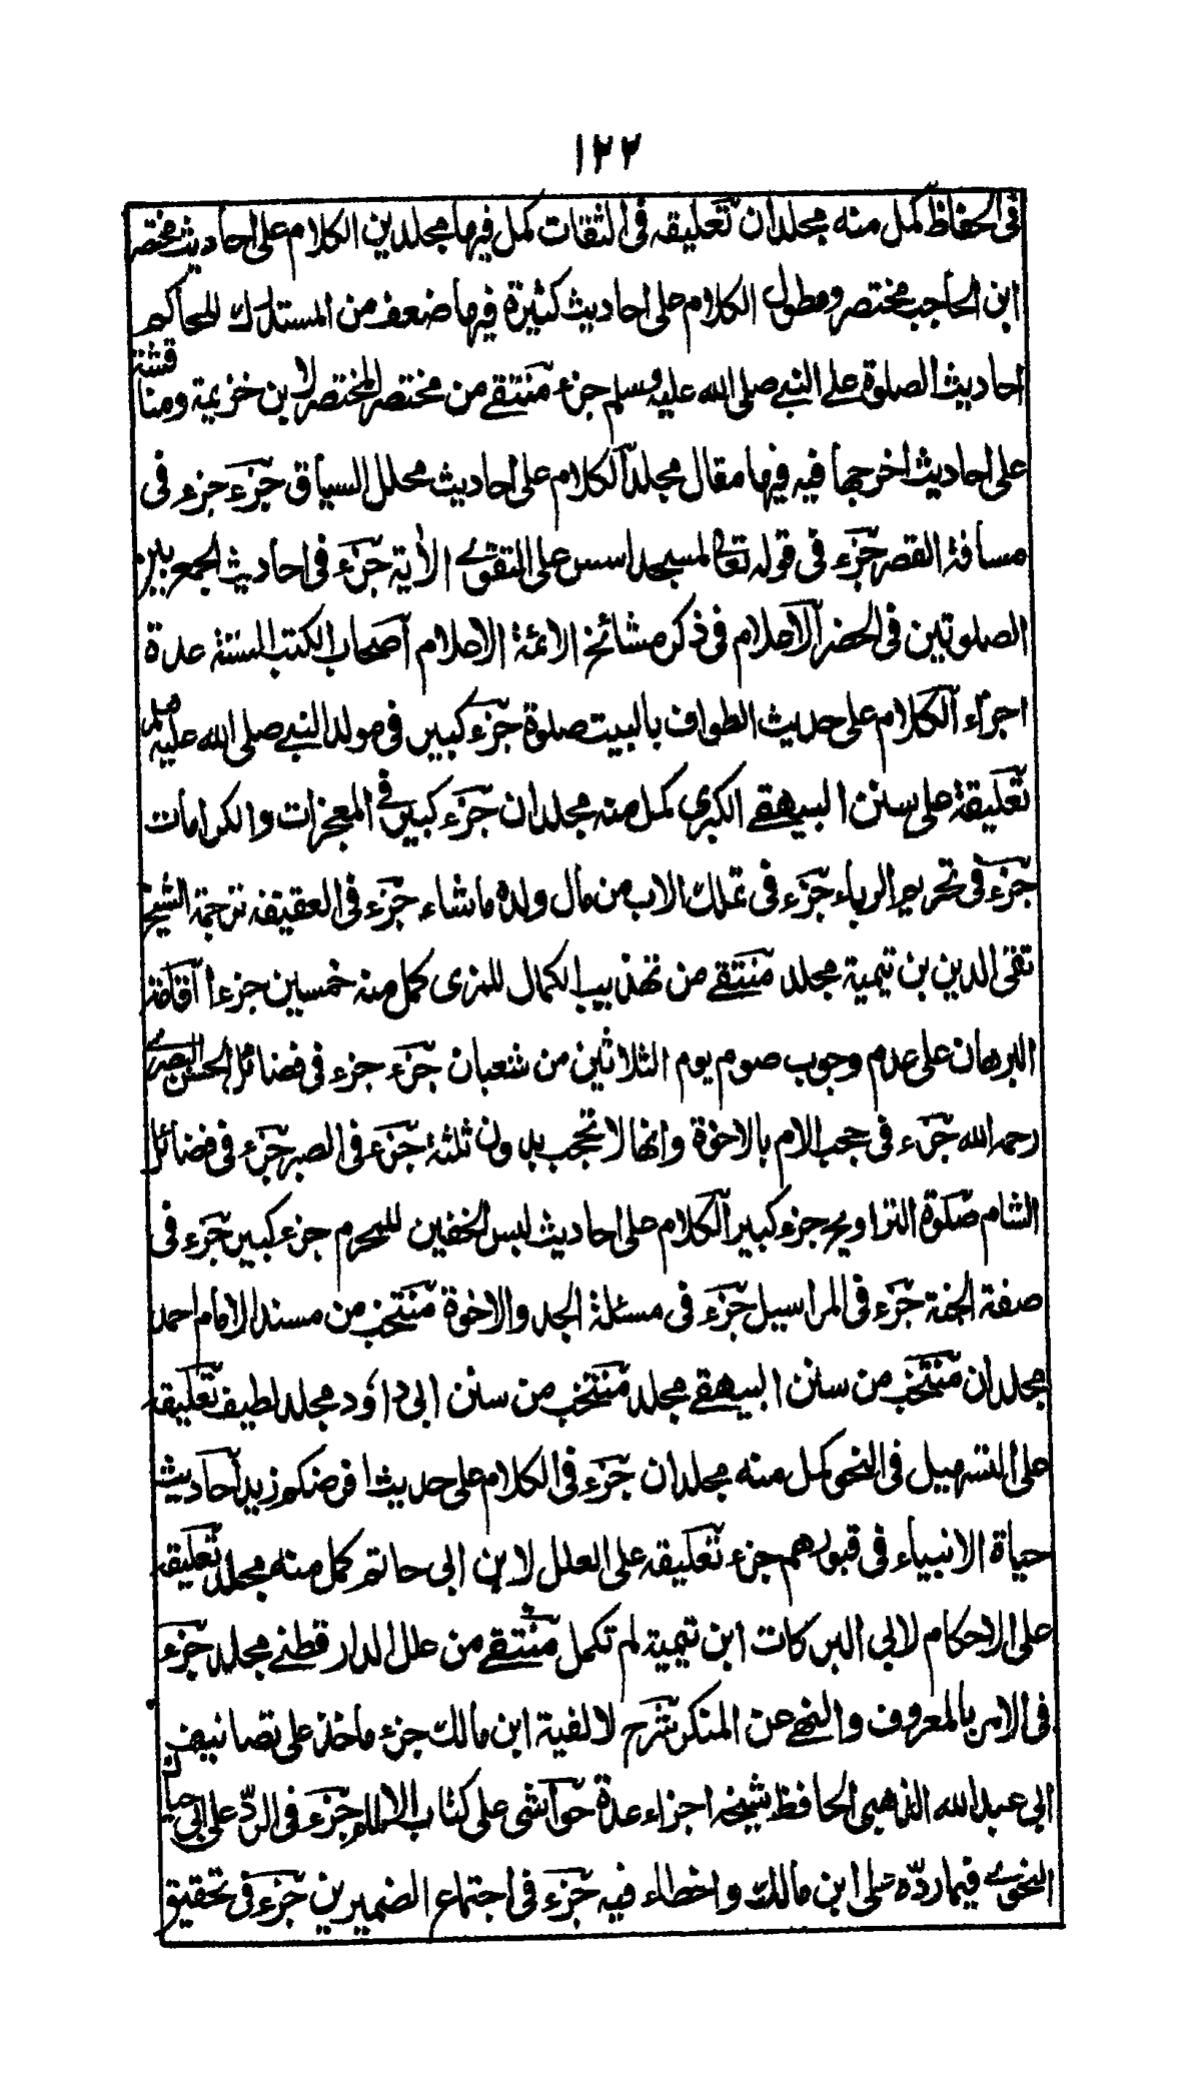 ١٢٢
فى الحفاظ كمل منه مجلدان تعليقه فى الثقات كمل فيها مجلدين الكلام على احاديث مختصر
ابن الحاجب مختصر ومطول الكلام على احاديث كثيرة فيها ضعف من المستدرك للحاكم
احاديث الصلوة على النبي صلى الله عليه وسلم جزء منتقے من مختصر المختصر لابن خزيمة ومناقشته
على احاديث اخرجها فيه فيها مقال مجلد الكلام على احاديث محلل السباق جزء جزء فى
مسافة القصر جزء فى قوله تعالى لمسجد اسس على التقوى الأية جزء فى احاديث الجمع بين
الصلوتين فى الحضر الاعلام فى ذكر مشائخ الائمة الاعلام اصحاب الكتب الستة عدة
اجزاء الكلام على حديث الطواف بالبيت صلوة جزء كبير فى مولد النبي صلى الله عليه
تعليقة على سنن البيهقے الكبرى كمل منه مجلدان جزء كبير فى المعجزات والكرامات
جزء فى تحريم الرباء جزء فى تملك الاب من مال ولده ما شاء جزء فى العقيقه ترجمة الشيخ
تقى الدين بن تيمية مجلد منتقے من تهذيب الكمال للمزى كمل منه خمسين جزءا اقامة
البرهان على عدم وجوب صوم يوم الثلاثين من شعبان جزء جزء فى فضائل الحسن البصرى
رحمه الله جزء فى حجب الام بالاخوة وانها لا تحجب بدون ثلثة جزء فى الصبر جزء فى فضائل
الشام صلوة التراويح جزء كبير الكلام على احاديث لبس الخفين للمحرم جزء كبير جزء فى
صفة الجنة جزء فى المراسيل جزء فى مسئلة الجد والاخوة منتخب من مسند الامام احمد
مجلدان منتخب من سنن البيهقے مجلد منتخب من سنن ابى داؤد مجلد لطيف تعليقه
على التسهيل فى النحو كمل منه مجلدان جزء فى الكلام على حديث افرضكم زيد احاديث
حياة الانبياء فى قبورهم جزء تعليقه على العلل لابن ابى حاتم كمل منه مجلد تعليقه
على الاحكام لابى البركات ابن تيمية لم تكمل منتقے من علل الدارقطنے مجلد جزء
فى الامر بالمعروف والنهے عن المنكر شرح لالفية ابن مالك جزء ماخذ على تصانيف
ابى عبد الله الذهبى الحافظ شيخه اجزاء عدة حواشى على كتاب الالمام جزء فى الردّ على ابى حيان
النحوى فيما ردّه على ابن مالك واخطاء فيه جزء فى اجتماع الضميرين جزء فى تحقيق